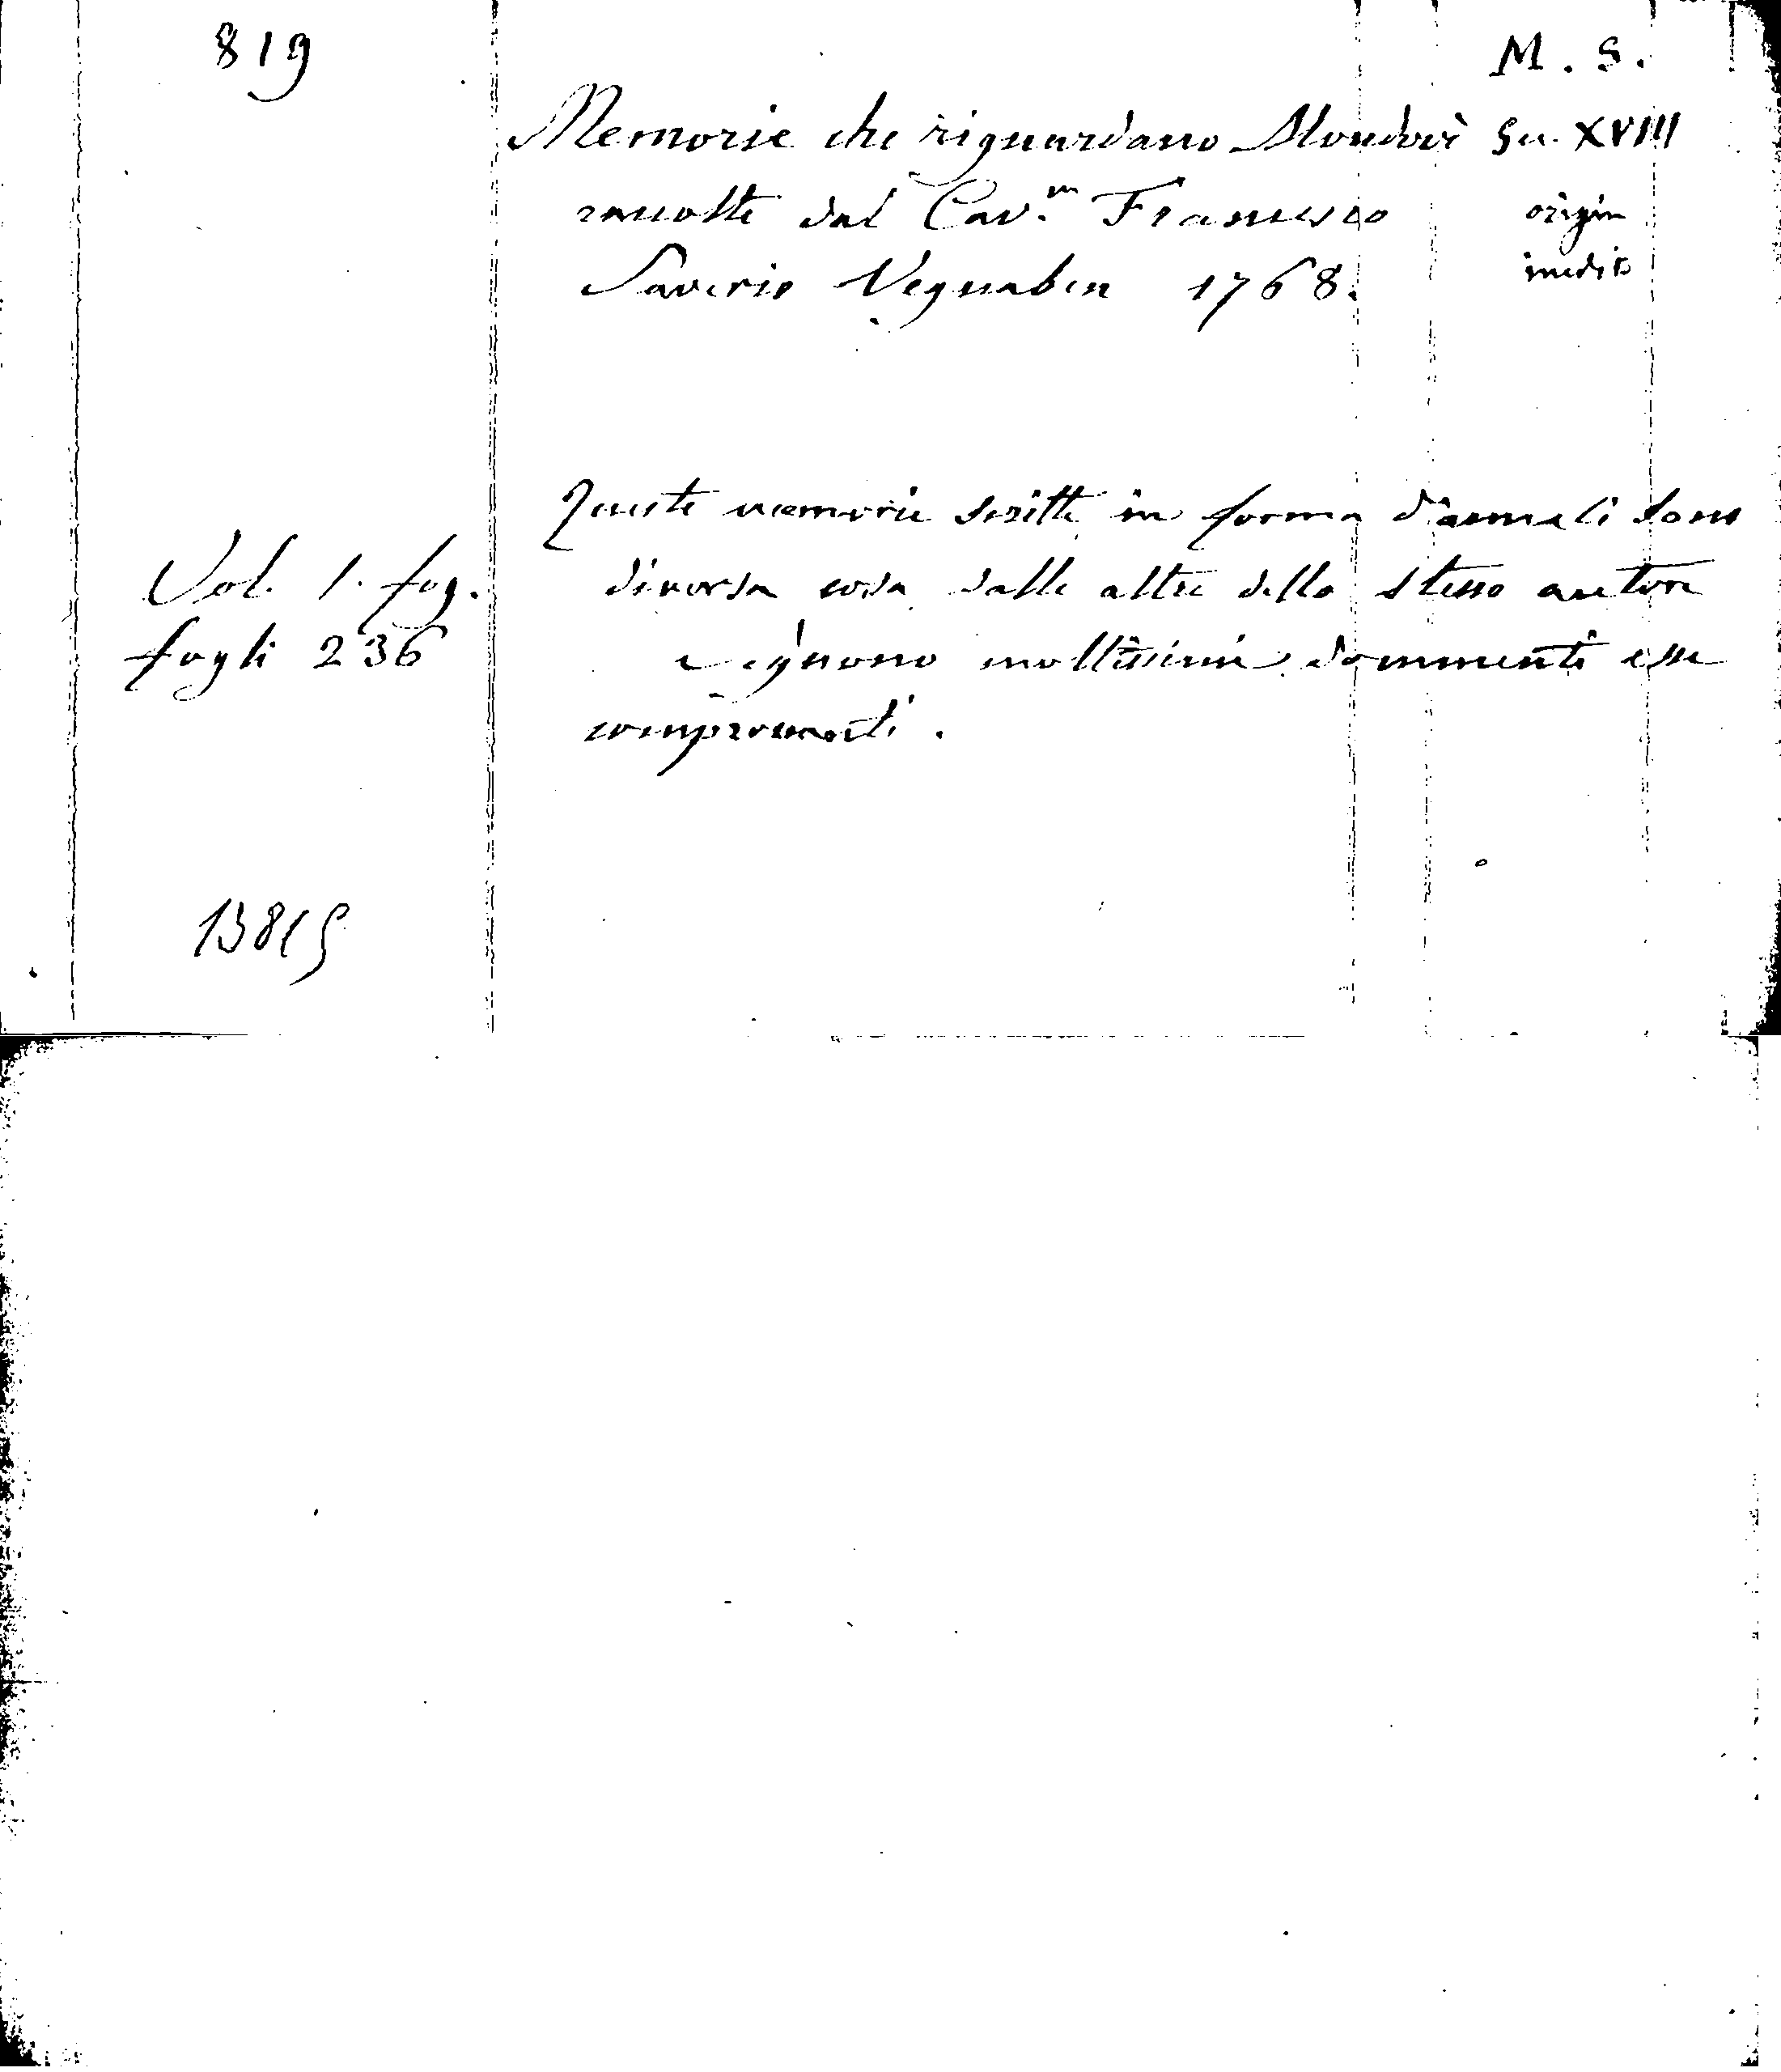 819
M. S.
Memorie che riguardano Mondovì Sec. XVIII
raccolte dal Cav.re Francesco
origin
Saverio Vegnaben 1768.
inedito
Queste memorie scritte in forma d'annali sono
Vol. 1. fog.
diversa cosa dalle altre dello stesso autore
fogli 236
e seguono moltissimi documenti esse
comprovanti.
13819